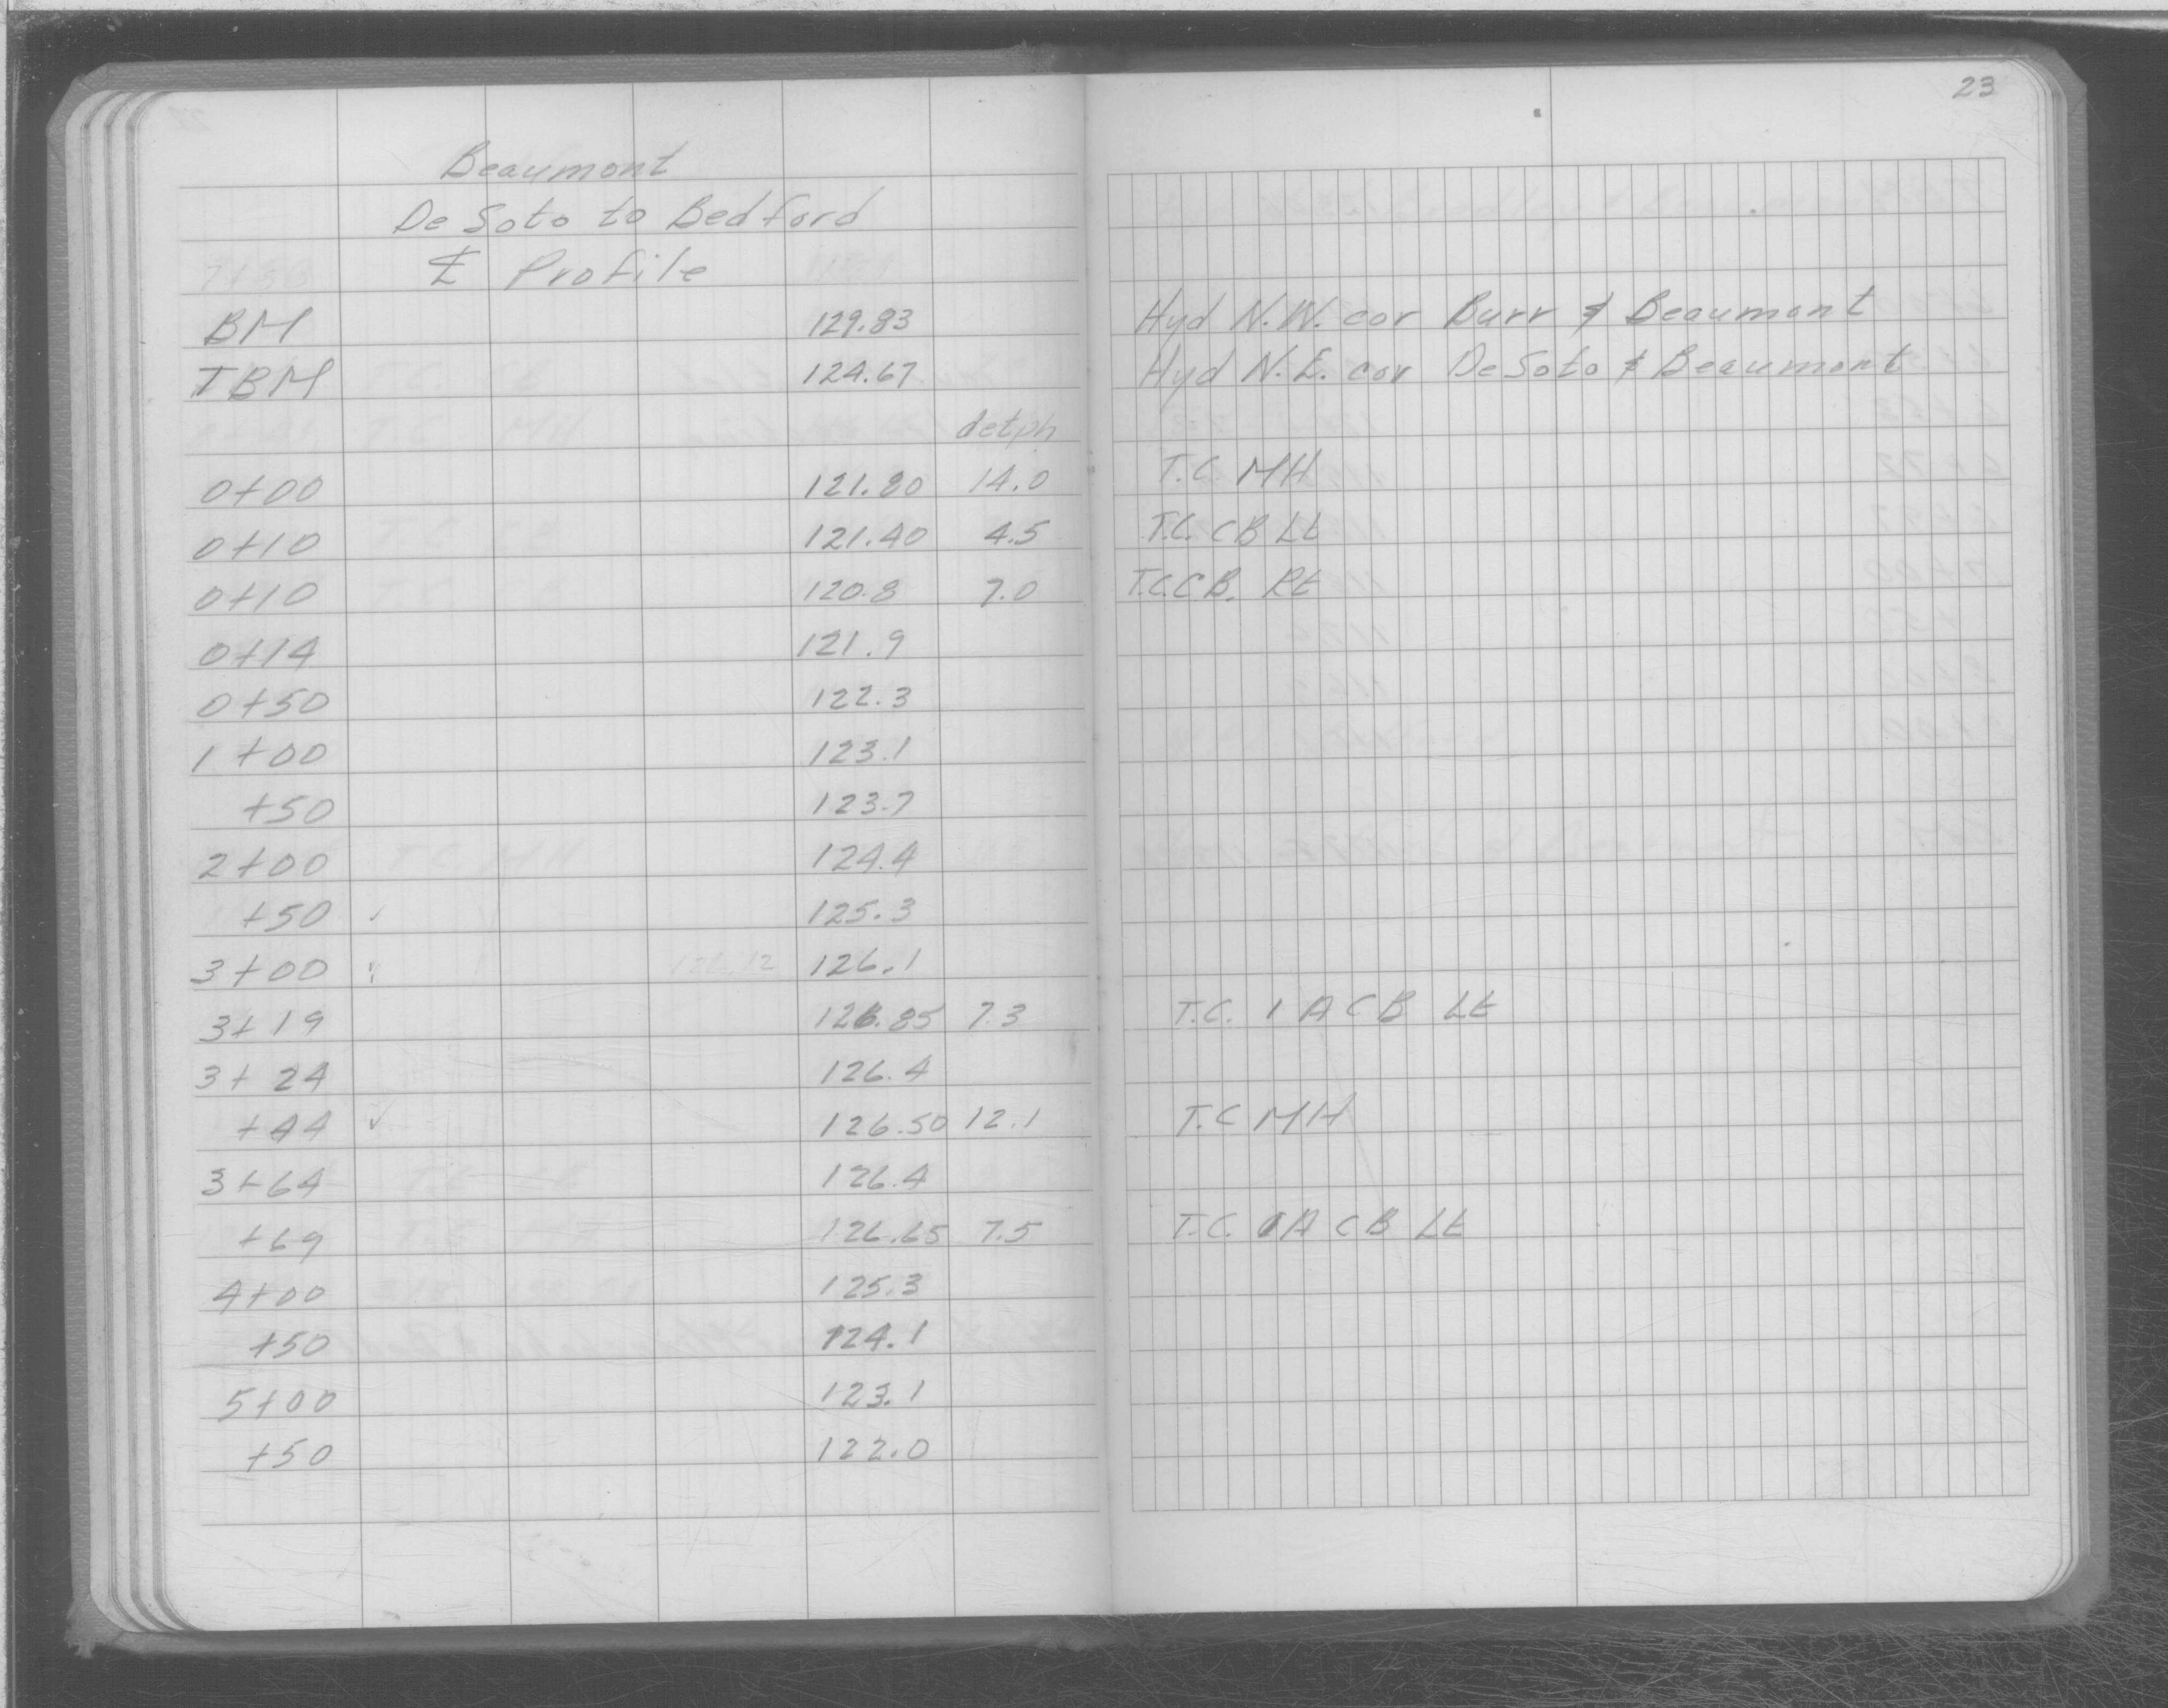 23
Beaumont
De Soto to Bedford
℄ Profile
BM 129.83 Hyd N.W. cor Burr & Beaumont
TBM 124.67 Hyd N.E. cor DeSoto & Beaumont
detph
0+00 121.80 14.0 T.C. MH
0+10 121.40 4.5 T.C. CB Lt
0+10 120.8 7.0 T.C.CB. Rt
0+14 121.9
0+50 122.3
1+00 123.1
+50 123.7
2+00 124.4
+50 ✓ 125.3
3+00 126.12 126.1
3+19 126.85 7.3 T.C. 1 A CB Lt
3+24 126.4
+44 ✓ 126.50 12.1 T.C MH
3+64 126.4
+69 126.65 7.5 T.C. 1A CB Lt
4+00 125.3
+50 124.1
5+00 123.1
+50 122.0